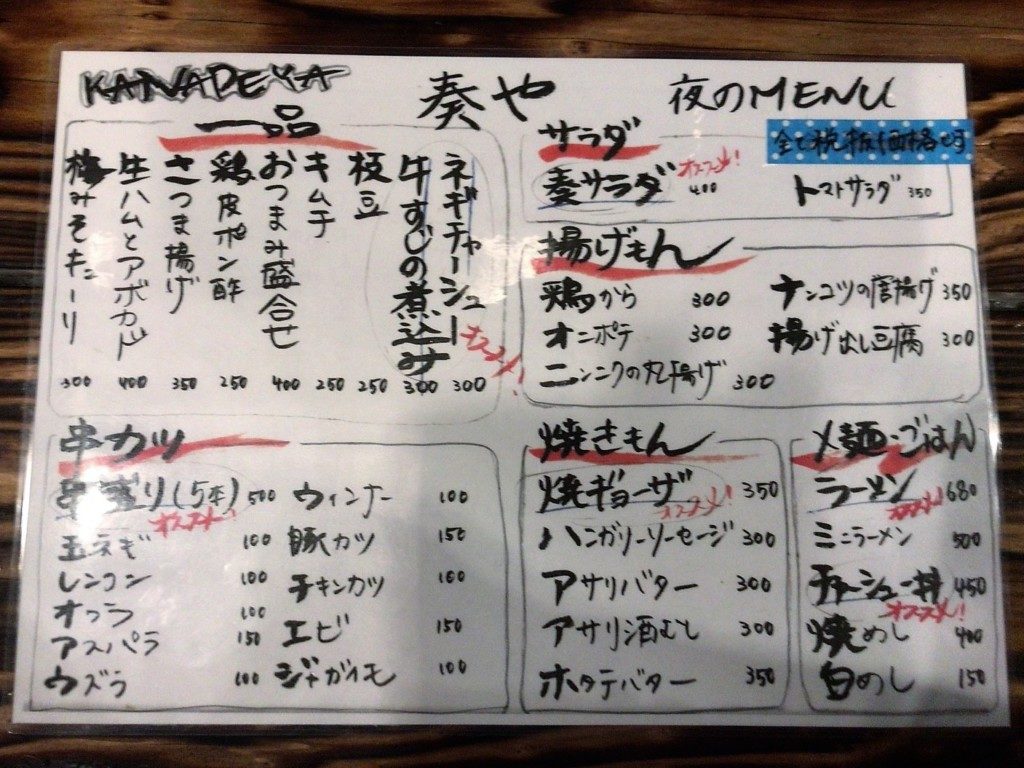 KANADEYA 奏や 夜のMENU
全て税抜価格です
一品
ネギチャーシュー 300
オススメ!
牛すじの煮込み 300
枝豆 250
キムチ 250
おつまみ盛合せ 400
鶏皮ポン酢 250
さつま揚げ 350
生ハムとアボカド 400
梅みそキューリ 300
サラダ
奏サラダ 400
オススメ!
トマトサラダ 350
揚げもん
鶏から 300
ナンコツの唐揚げ 350
オニポテ 300
揚げ出し豆腐 300
ニンニクの丸揚げ 300
串カツ
串盛り(5本) 500
オススメ!
玉ネギ 100
レンコン 100
オクラ 100
アスパラ 150
ウズラ 100
ウィンナー 100
豚カツ 150
チキンカツ 100
エビ 150
ジャガイモ 100
焼きもん
焼ギョーザ 350
オススメ!
ハンガリーソーセージ 300
アサリバター 300
アサリ酒むし 300
ホタテバター 350
〆麺・ごはん
ラーメン 680
オススメ!
ミニラーメン 500
チャーシュー丼 450
オススメ!
焼めし 400
白めし 150